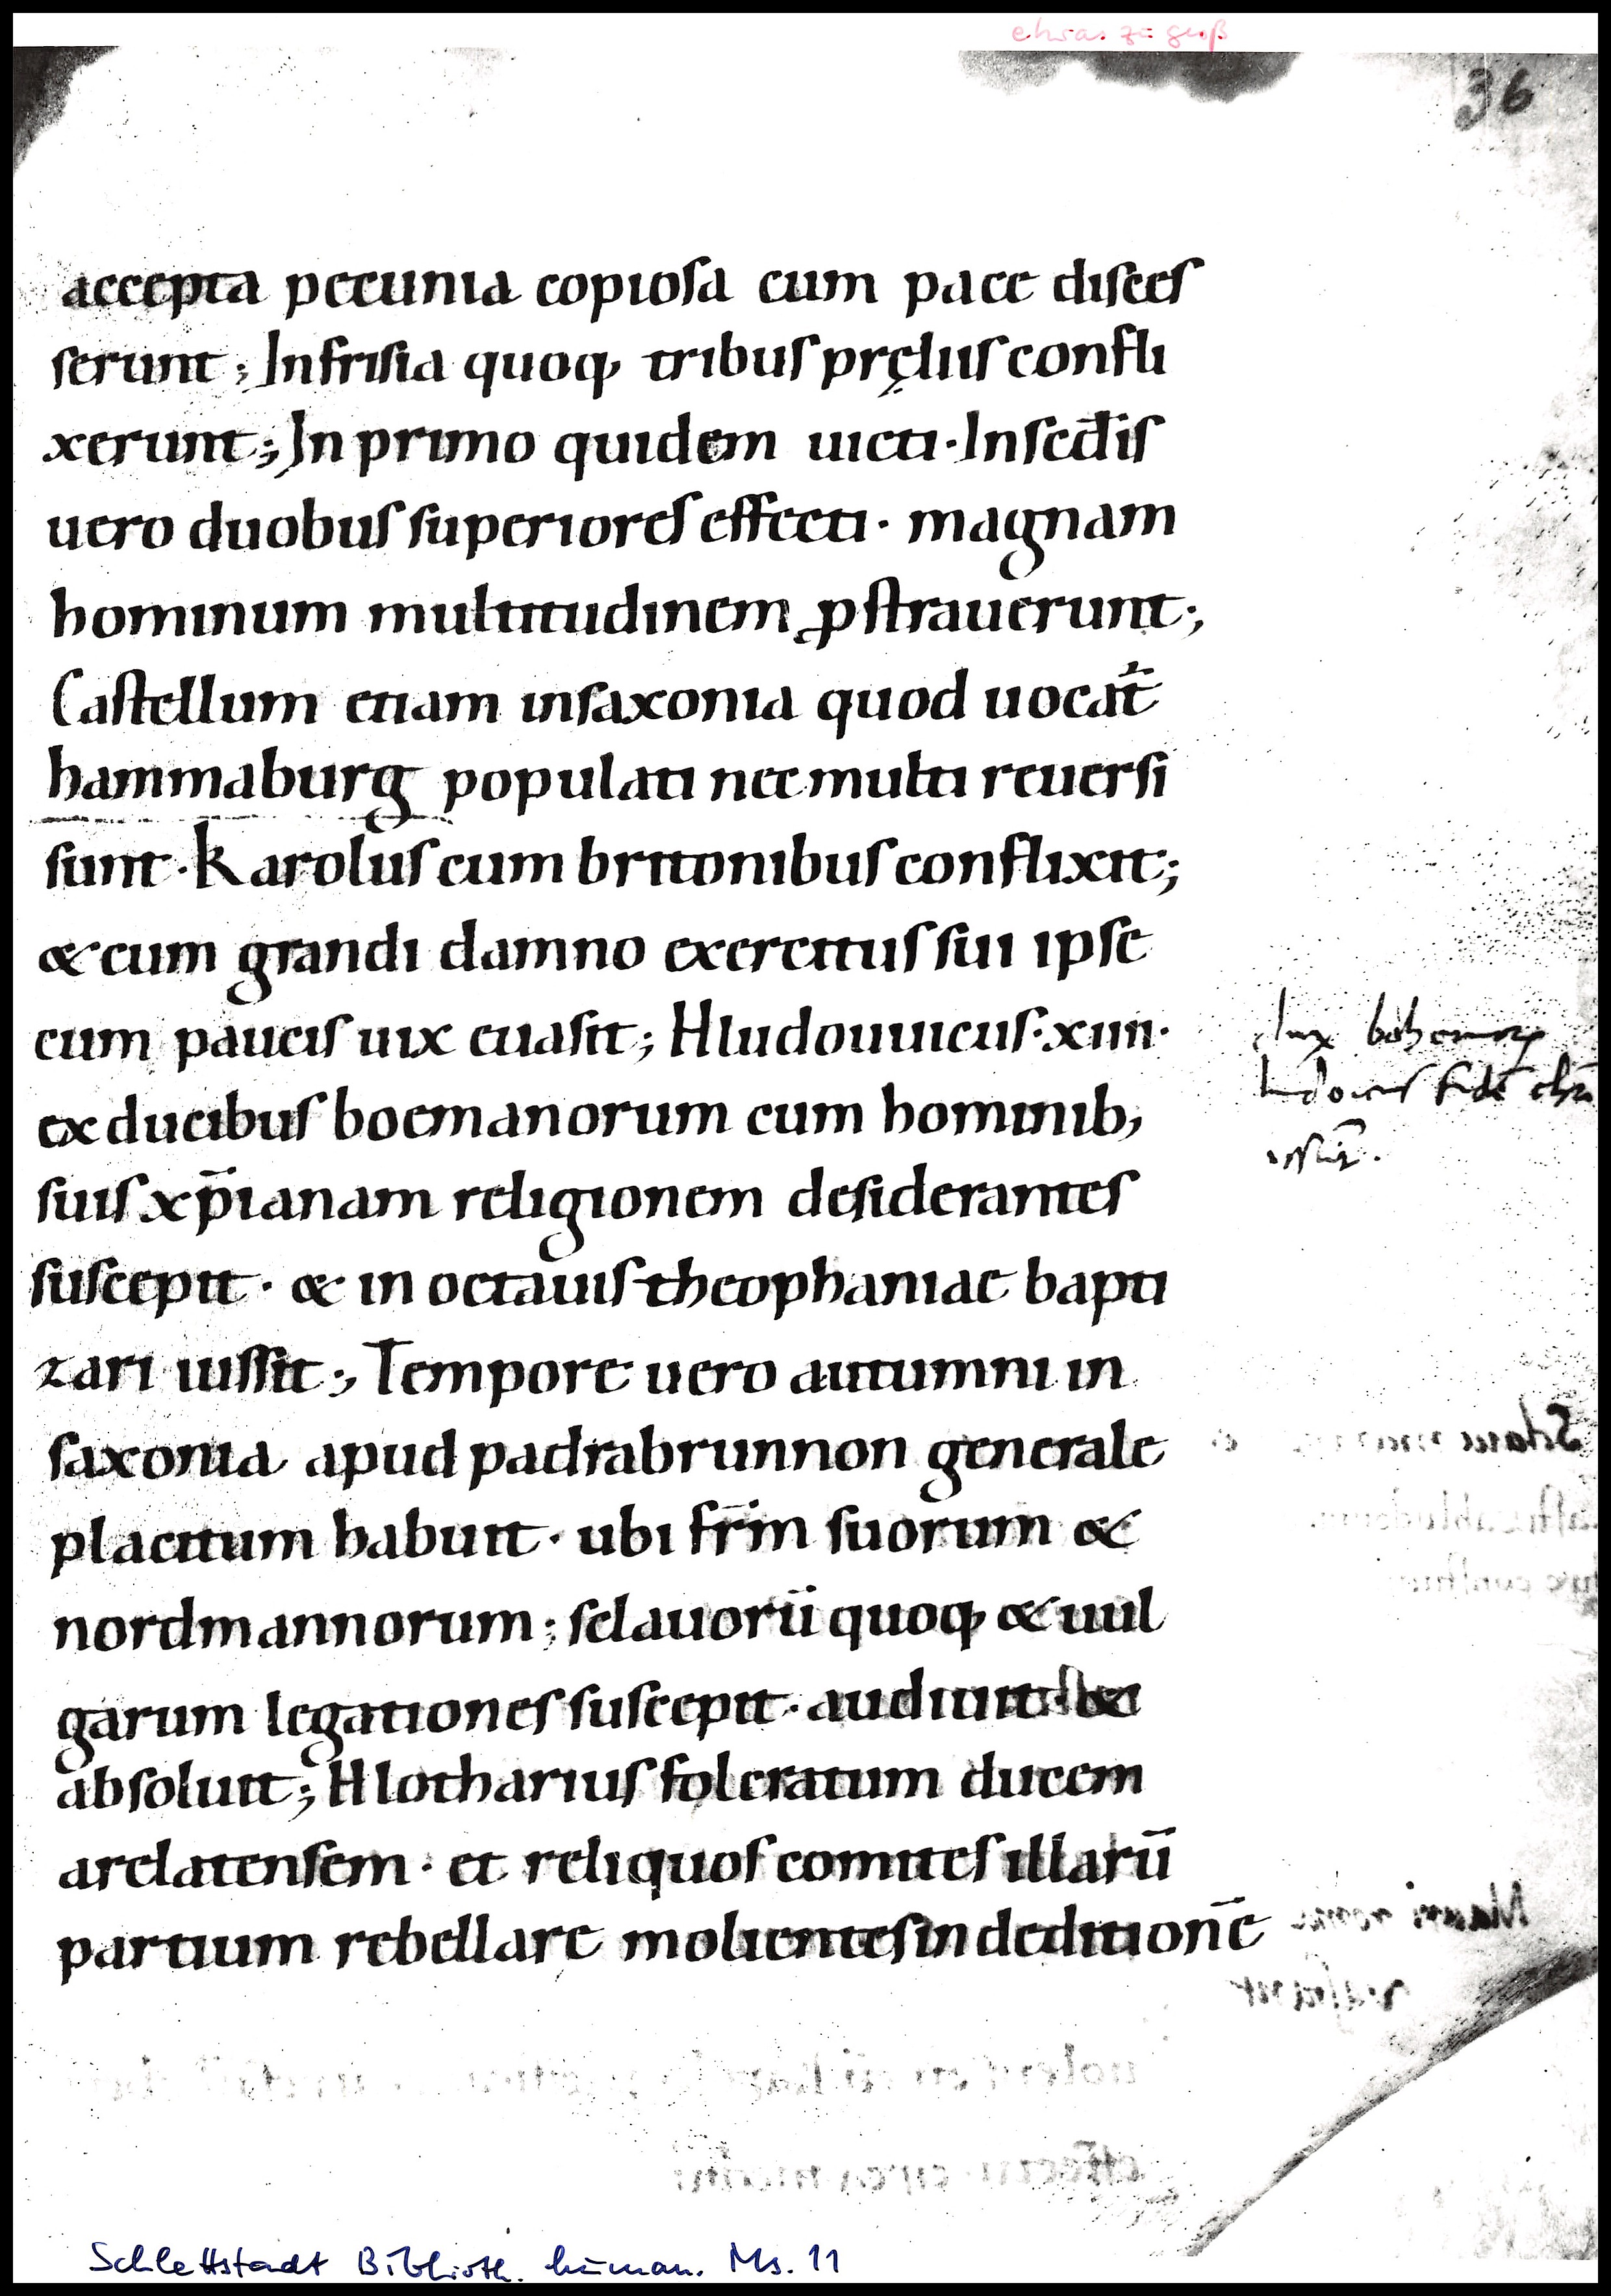 etwas zu groß
36
accepta pecunia copiosa cum pace disces
serunt; In frisia quoq, tribus pręliis confli
xerunt; In primo quidem uicti· In secdis
uero duobus superiores effecti· magnam
hominum multitudinem ꝓstrauerunt;
Castellum etiam in saxonia quod uocat̄
hammaburg populati nec multi reuersi
sunt· Karolus cum brittonibus conflixit;
& cum grandi damno exercitus sui ipse
cum paucis uix euasit; Hludouuicus·xiiii·
ex ducibus boemanorum cum hominib;
suis xp̄ianam religionem desiderantes
suscepit· & in octauis theophaniae bapti
zari iussit; Tempore uero autumni in
saxonia apud padrabrunnon generale
placitum habuit· ubi fr̄m suorum &
nordmannorum; sclauorū quoq, & uul
garum legationes suscepit· audiuit· &
absoluit; Hlotharius folcratum ducem
arelatensem· et reliquos comites illarū
partium rebellare molientes in deditionē
dux bohemorꝝ
Schlettstadt Biblioth. human. Ms. 11